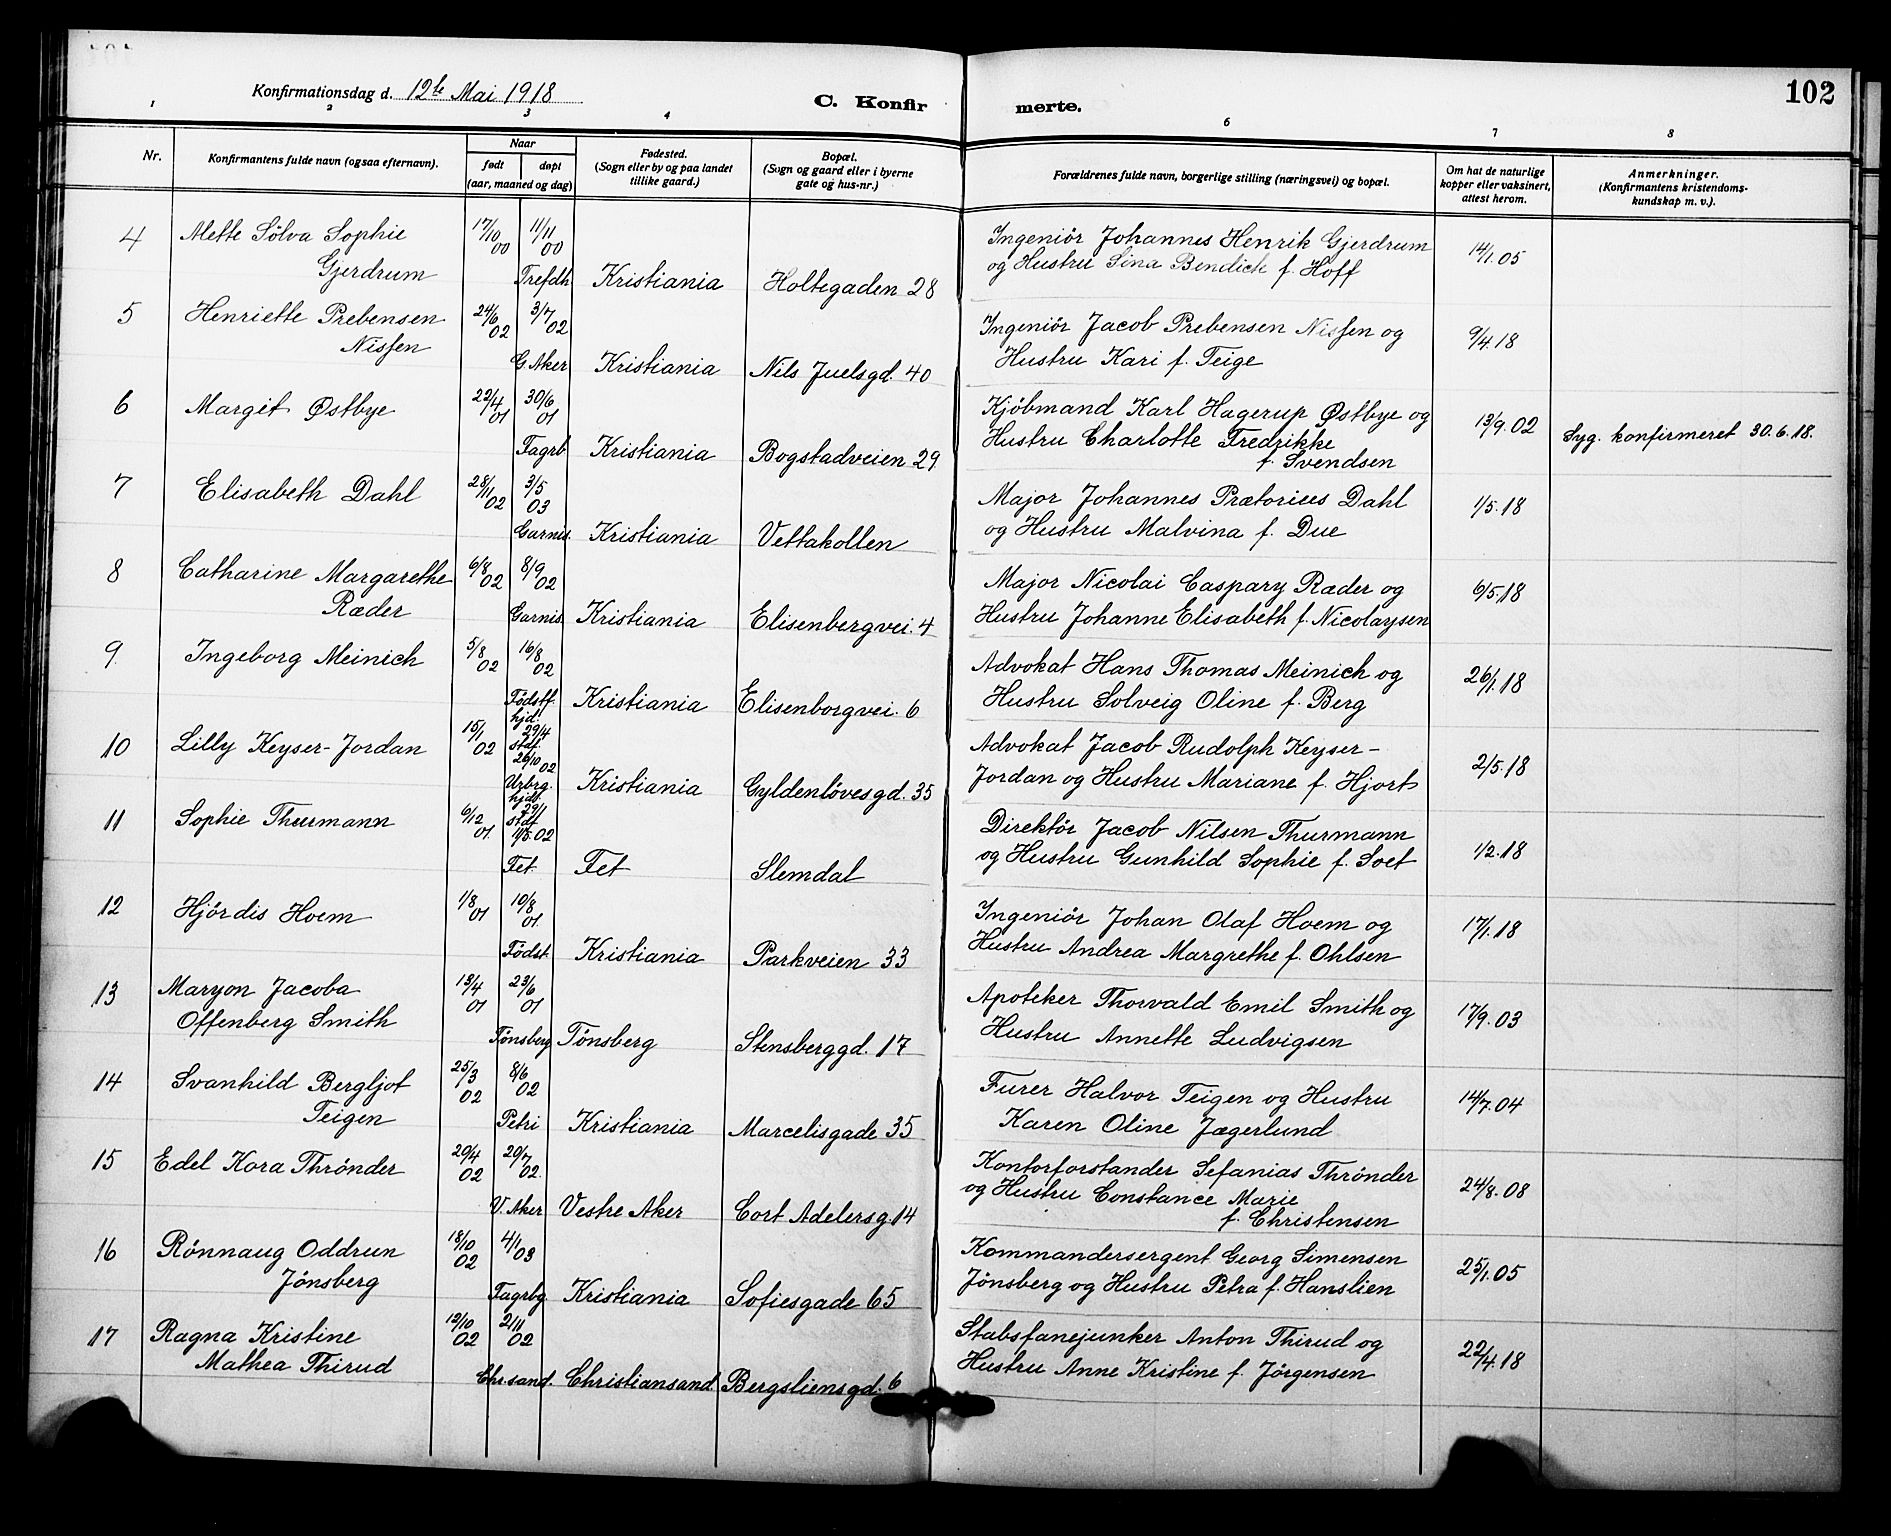 102
Konfirmationsdag d. 12te Mai 1918
C. Konfir merte.
1 2 3 4 6 7 8
Nr.
Konfirmantens fulde navn (ogsaa efternavn).
Naar
født
døpt
(aar, maaned og dag)
Fødested.
(Sogn eller by og paa landet
tillike gaard.)
Bopæl.
(Sogn og gaard eller i byerne
gate og hus-nr.)
Forældrenes fulde navn, borgerlige stilling (næringsvei) og bopæl.
Om hat de naturlige
kopper eller vaksinert,
attest herom.
Anmerkninger.
(Konfirmantens kristendoms-
kundskap m. v.).
4 Mette Sölva Sophie 17/10 00 11/11 00 Ingeniör Johannes Henrik Gjerdrum 14/1.05
Gjerdrum Trefdh. Kristiania Holtegaden 28 og Hustru Sina Bendick f. Hoff
5 Henriette Prebensen 24/6 02 3/7 02 Ingeniör Jacob Prebensen Nissen og 9/4.18
Nissen G. Aker Kristiania Nils Juelsgd. 40 Hustru Kari f. Teige
6 Margit Østbye 22/4 01 30/6 01 Kjöbmand Karl Hagerup Østbye og 13/9.02
Fagrb. Kristiania Bogstadveien 29 Hustru Charlotte Fredrikke Syg. konfirmeret 30.6.18.
f. Svendsen
7 Elisabeth Dahl 28/11 02 3/5 03 Major Johannes Prætorices Dahl 1/5.18
Garnis. Kristiania Vettakollen og Hustru Malvina f. Due
8 Catharine Margarethe 6/8 02 8/9 02 Major Nicolai Caspary Ræder og 6/5.18
Ræder Garnis. Kristiania Elisenbergvei. 4 Hustru Johanne Elisabeth f. Nicolaysen
9. Ingeborg Meinich 5/8 02 16/8 02 Advokat Hans Thomas Meinich og 26/1.18
Födstf. Kristiania Elisenborgvei. 6 Hustru Solveig Oline f. Berg
10 Lilly Keyser-Jordan 15/1 02 hjd. 29/4 stdf. 26/10 02 Advokat Jacob Rudolph Keyser- 2/5.18
Uzbrg. Kristiania Gyldenlövesgd. 35 Jordan og Hustru Mariane f. Hjort
11 Sophie Thurmann 6/12 01. hjdb. 29/1 stdf. 1/5.02 Direktör Jacob Nilsen Thurmann 1/2.18
Fet. Fet Slemdal og Hustru Gunhild Sophie f. Soet
12 Hjördis Hoem 1/8 01 10/8 01. Ingeniör Johan Olaf Hoem og 17/1.18
Födst. Kristiania Parkveien 33 Hustru Andrea Margrethe f. Ohlsen
13 Maryon Jacoba 13/4 01 23/6 01 Apoteker Thorvald Emil Smith og 17/9.03
Offenberg Smith Tönsberg Tönsberg Stensberggd. 17 Hustru Annette Ludvigsen
14 Svanhild Bergljot 25/3 02 8/6 02 Furer Halvor Teigen og Hustru 14/7.04
Teigen Petri Kristiania Marcelisgade 35 Karen Oline Jægerlund
15 Edel Kora Thrönder 20/4 02 20/7 02. Kontorforstander Sefanias Thrönder 24/8.08
V. Aker Vestre Aker Cort Adelersg. 14 og Hustru Constance Marie
f. Christensen
16 Rönnaug Oddrun 18/10 02 4/1 03 Kommandersergent Georg Simensen 25/1.05
Jönsberg Fagrbg Kristiania Sofiesgade 65 Jönsberg og Hustru Petra f. Hanslien
17 Ragna Kristine 12/10 02 2/11 02 Stabsfanejunker Anton Thirud og 22/4.18
Mathea Thirud Chr.sand. Christiansand Bergsliensgd. 6 Hustru Anne Kristine f. Jörgensen